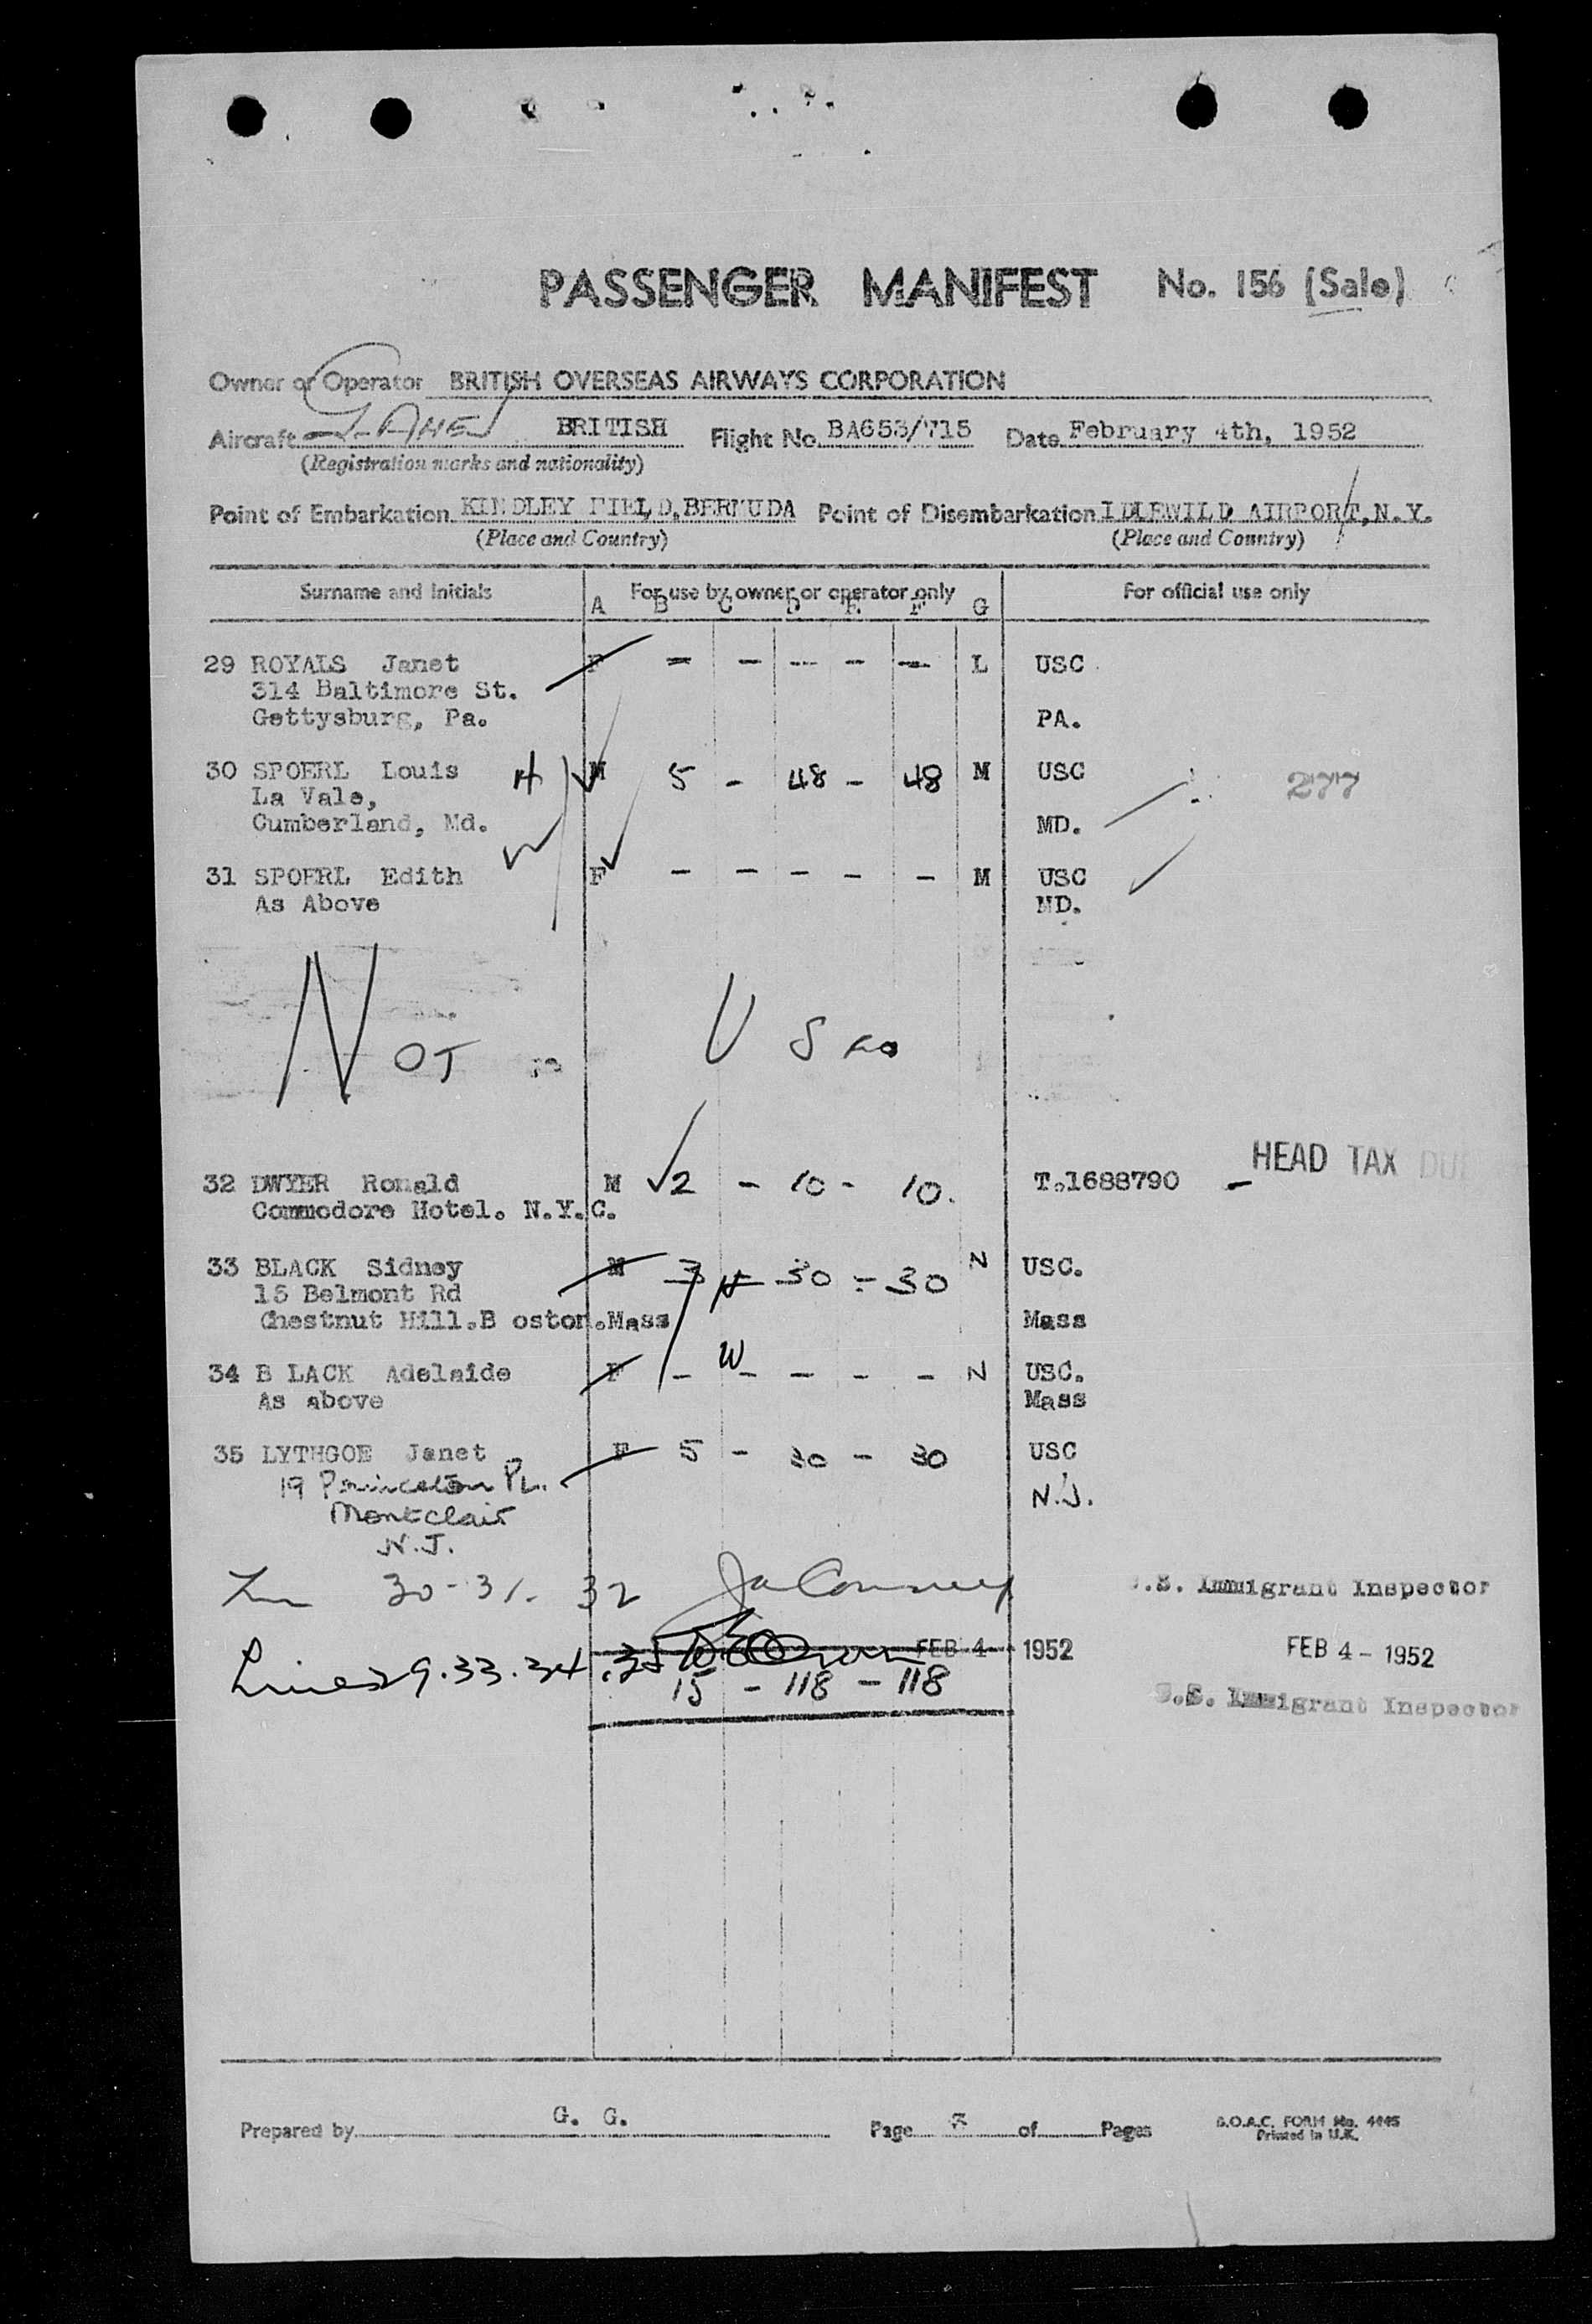 PASSENGER MANIFEST No. 156 (Sale)
Owner or Operator BRITISH OVERSEAS AIRWAYS CORPORATION
Aircraft BRITISH Flight No. BA653/715 Date February 4th, 1952
(Registration marks and nationality)
Point of Embarkation KINDLEY FIELD, BERMUDA Point of Disembarkation IDLEWILD AIRPORT, N.Y.
(Place and Country) (Place and Country)
Surname and Initials For use by owner or operator only For official use only
A B C D E F G
29 ROYALS Janet F - - - - - L USC
314 Baltimore St.
Gettysburg, Pa. PA.
30 SPOERL Louis H M 5 - 48 - 48 M USC 277
La Vale,
Cumberland, Md. MD.
W
31 SPOERL Edith F - - - - - M USC
As Above MD.
NOT USED
HEAD TAX DUE
32 DWYER Ronald M 2 - 10 - 10. T.1688790 -
Commodore Hotel. N.Y.C.
33 BLACK Sidney M 3 H 30 - 30 N USC.
15 Belmont Rd
Chestnut Hill.B oston.Mass Mass
34 B LACK Adelaide F - W - - - - N USC.
As above Mass
35 LYTHGOE Janet F 5 - 30 - 30 USC
19 Princeton PL. N.J.
Montclair
N.J.
30-31-32 U.S. Immigrant Inspector
FEB 4 - 1952 FEB 4 - 1952
Lines 29.33.34.35
15 - 118 - 118 U.S. Immigrant Inspector
Prepared by G. G. Page of Pages B.O.A.C. FORM No. 4445
Printed in U.K.